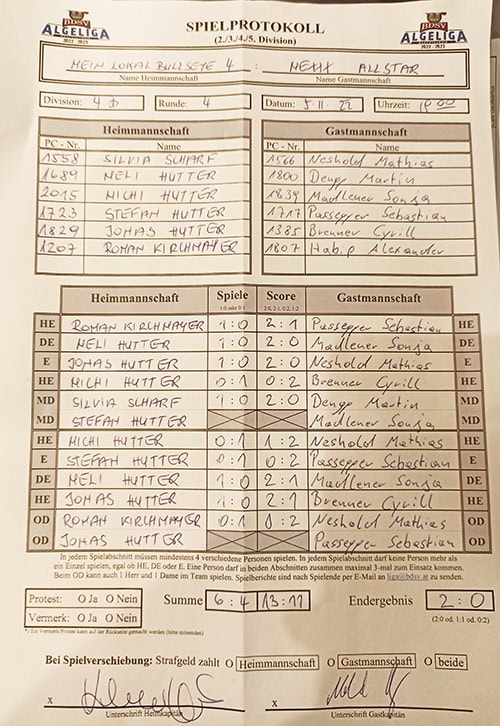 BDSV
ALGELIGA
2022 - 2023
SPIELPROTOKOLL
(2./3./4./5. Division)
BDSV
ALGELIGA
2022 - 2023
MEIN LOKAL BULLSEYE 4 : NEXX ALLSTAR
Name Heimmannschaft Name Gastmannschaft
Division: 4 D Runde: 4 Datum: 5.11.22 Uhrzeit: 18:00
Heimmannschaft Gastmannschaft
PC - Nr. Name PC - Nr. Name
1558 SILVIA SCHARF 1566 Neshold Mathias
1689 MELI HUTTER 1800 Dengg Martin
2015 MICHI HUTTER 1839 Madlener Sonja
1723 STEFAN HUTTER 1717 Passepper Sebastian
1829 JONAS HUTTER 1385 Brenner Cyrill
1207 ROMAN KIRCHMAYER 1807 Alexander
Heimmannschaft Spiele Score Gastmannschaft
1:0 oder 0:1 2:0, 2:1, 0:2, 1:2
HE ROMAN KIRCHMAYER 1:0 2:1 Passepper Sebastian HE
DE MELI HUTTER 1:0 2:0 Madlener Sonja DE
E JONAS HUTTER 1:0 2:0 Neshold Mathias E
HE MICHI HUTTER 0:1 0:2 Brenner Cyrill HE
MD SILVIA SCHARF 1:0 2:0 Dengg Martin MD
MD STEFAN HUTTER Madlener Sonja MD
HE MICHI HUTTER 0:1 1:2 Neshold Mathias HE
E STEFAN HUTTER 0:1 0:2 Passepper Sebastian E
DE MELI HUTTER 1:0 2:1 Madlener Sonja DE
HE JONAS HUTTER 1:0 2:1 Brenner Cyrill HE
OD ROMAN KIRCHMAYER 0:1 0:2 Neshold Mathias OD
OD JONAS HUTTER Passepper Sebastian OD
In jedem Spielabschnitt müssen mindestens 4 verschiedene Personen spielen. In jedem Spielabschnitt darf keine Person mehr als
ein Einzel spielen, egal ob HE, DE oder E. Eine Person darf in beiden Abschnitten zusammen maximal 3-mal zum Einsatz kommen.
Beim OD kann auch 1 Herr und 1 Dame im Team spielen. Spielberichte sind nach Spielende per E-Mail an liga@bdsv.at zu senden.
Protest: O Ja O Nein Summe 6:4 13:11 Endergebnis 2:0
Vermerk: O Ja O Nein (2:0 od. 1:1 od. 0:2)
*) Ein Vermerk/Protest kann auf der Rückseite gemacht werden (bitte ankreuzen)
Bei Spielverschiebung: Strafgeld zahlt O Heimmannschaft O Gastmannschaft O beide
x x
Unterschrift Heimkapitän Unterschrift Gastkapitän